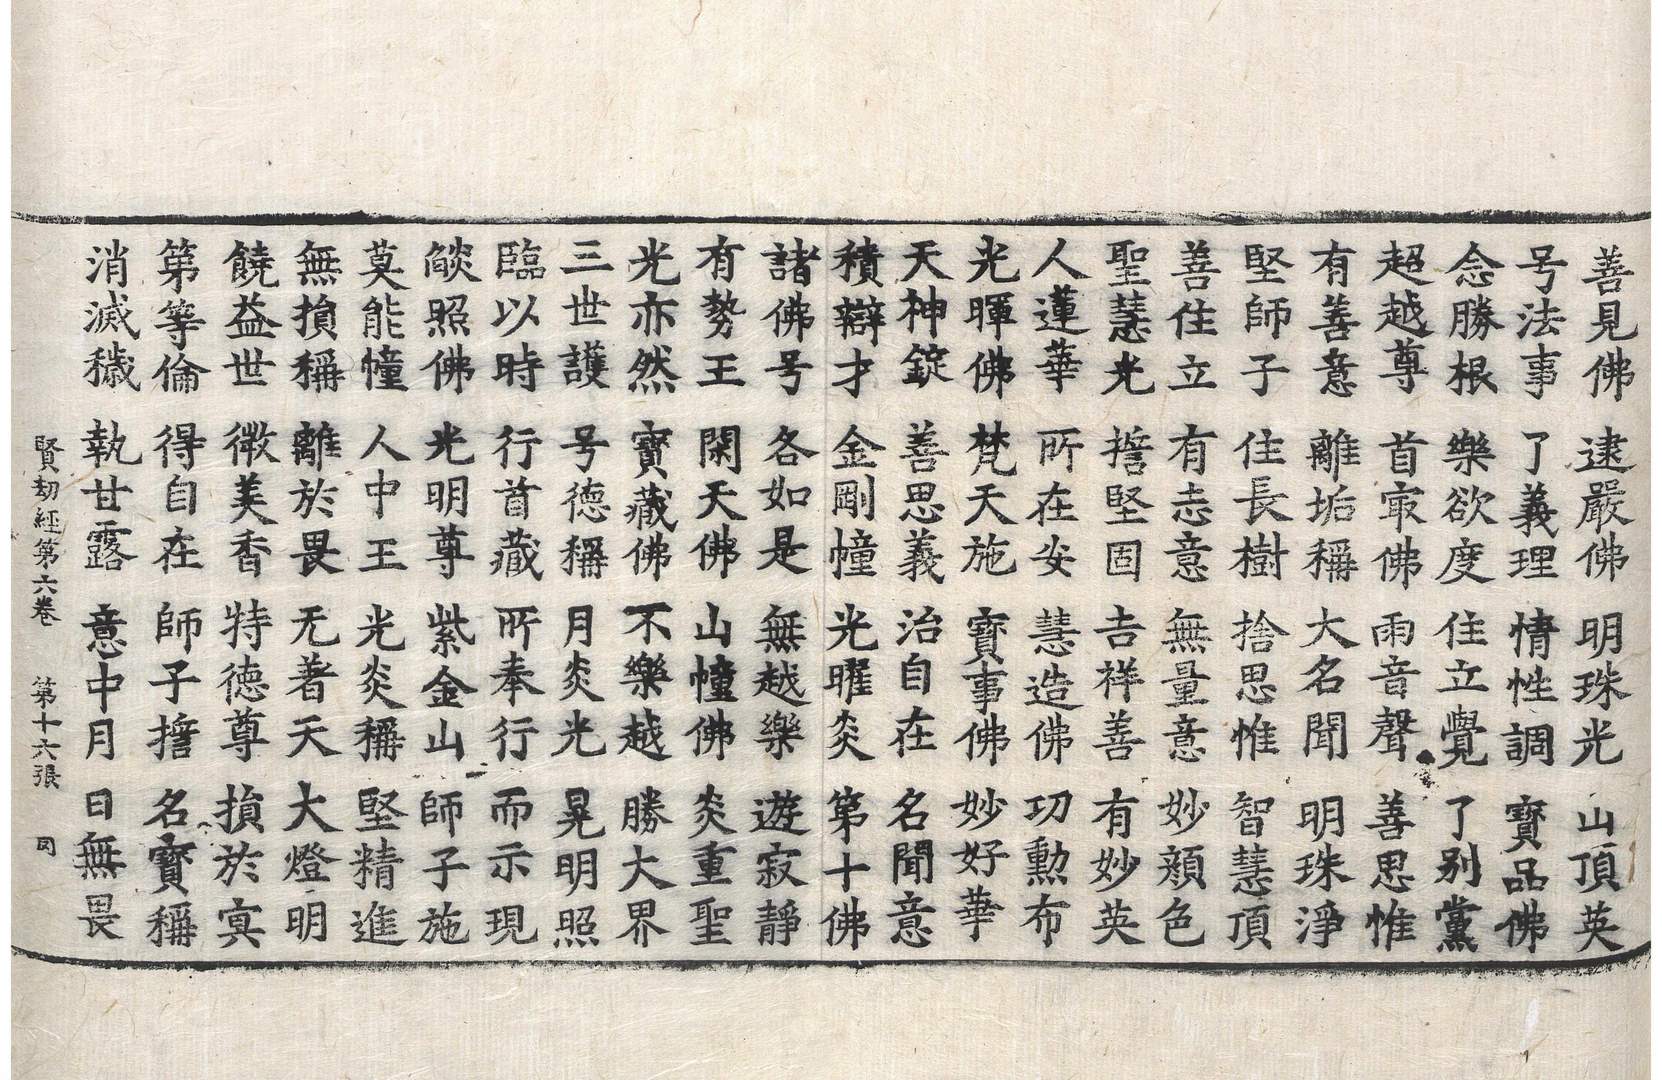 善見佛 逮嚴佛 明珠光 山頂英
号法事 了義理 情性調 寶品佛
念勝根 樂欲度 住立覺 了別黨
超越尊 首㝡佛 雨音聲 善思惟
有善意 離垢稱 大名聞 明珠淨
堅師子 住長樹 捨思惟 智慧頂
善住立 有志意 無量意 妙顏色
聖慧光 擔堅固 吉祥善 有妙英
人蓮華 所在安 慧造佛 功勳布
光暉佛 梵天施 寶事佛 妙好華
天神錠 善思義 治自在 名聞意
積辯才 金剛幢 光曜炎 第十佛
諸佛号 各如是 無越樂 遊寂靜
有勢王 閑天佛 山幢佛 炎重聖
光亦然 寶藏佛 不樂越 勝大界
三世護 号德稱 月炎光 晃明照
臨以時 行首藏 所奉行 而示現
燄照佛 光明尊 紫金山 師子施
莫能幢 人中王 光炎稱 堅精進
無損稱 離於畏 无著天 大燈明
饒益世 微美香 特德尊 損於㝠
第等倫 得自在 師子擔 名寶稱
消滅穢 執甘露 意中月 日無畏
賢劫經第六卷 第十六張